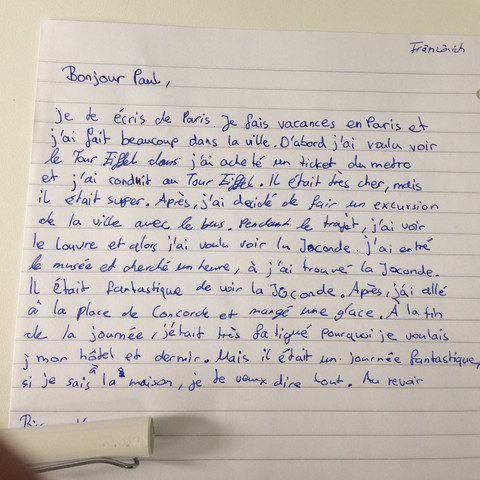 Bonjour Paul,
je te écris de Paris. Je fais vacances en Paris et
j'ai fait beaucoup dans la ville. D'abord j'ai voulu voir
le Tour Eiffel dans j'ai acheté un ticket du metro
et j'ai conduit au Tour Eiffel. Il était très cher, mais
il était super. Après, j'ai decidé de fair un excursion
de la ville avec le bus. Pendant le trajet, j'ai voir
le louvre et alors j'ai voulu voir la Joconde. j'ai entré
le musée et cherché un heure, à j'ai trouvé la Joconde.
Il était fantastique de voir la Joconde. Après, j'ai allé
à la place de Concorde et mangé une glace. À la fin
de la journée, j'était très fatigué pourquoi je voulais
j mon hôtel et dormir. Mais il était un journée fantastique,
si je sais à la maison, je te veux dire tout. Au revoir